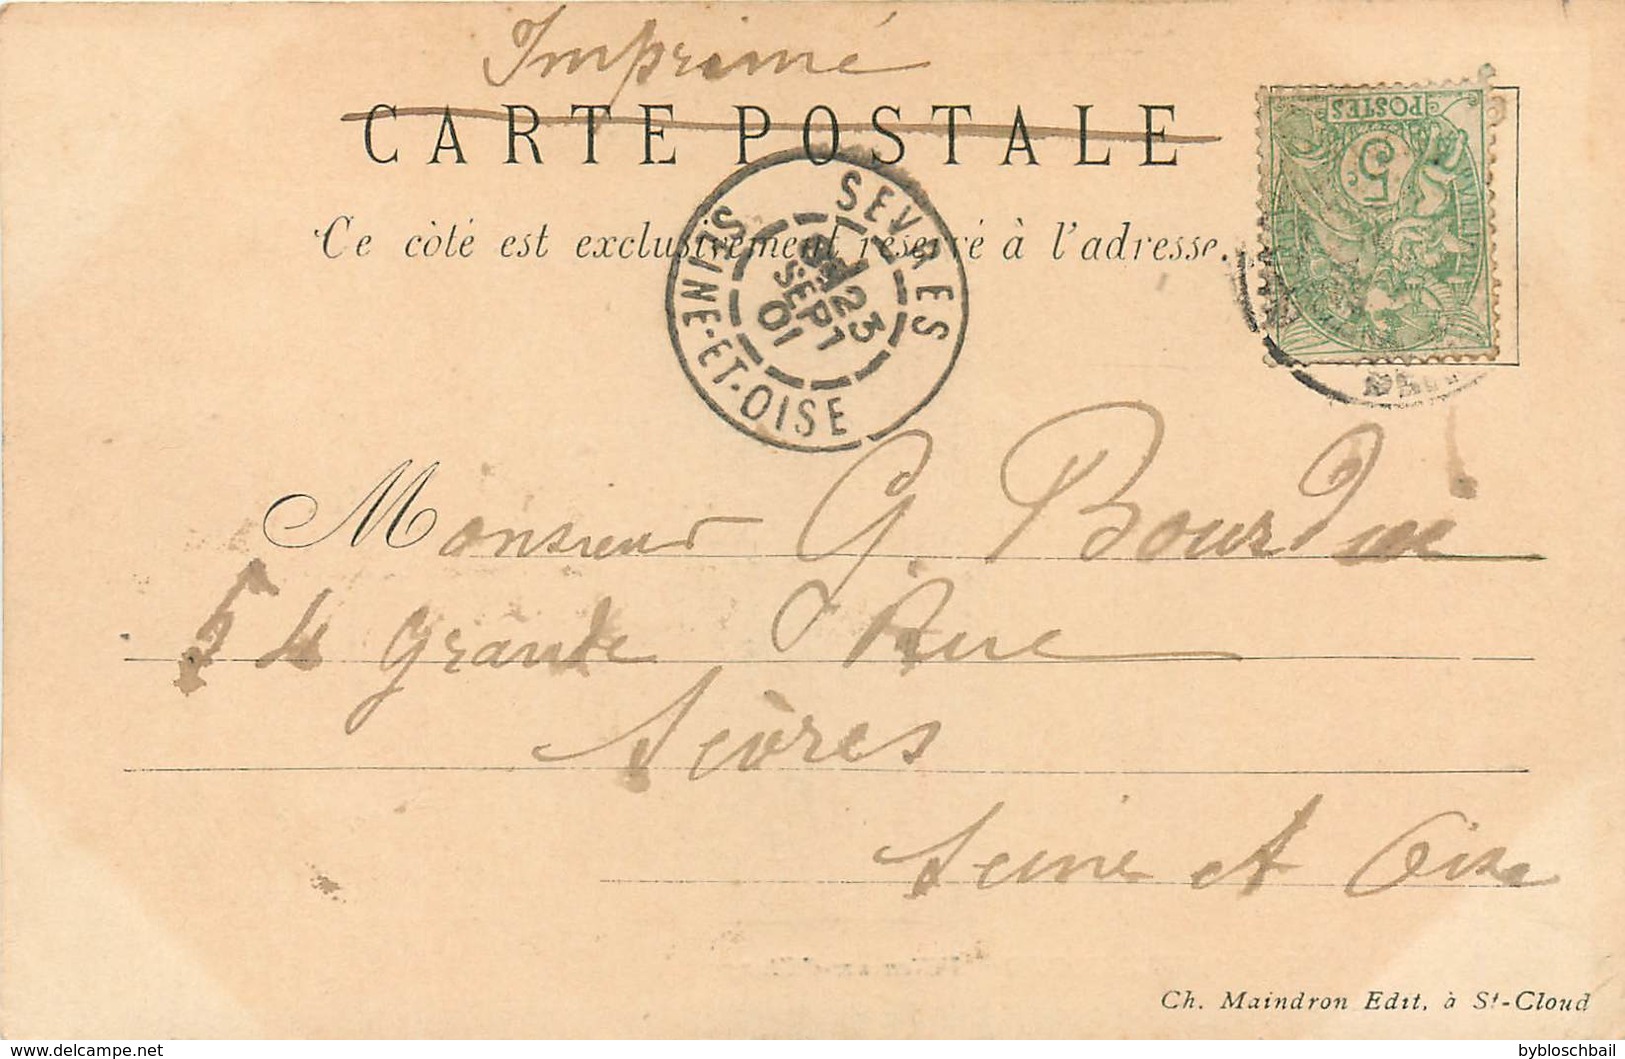 Imprimé
CARTE POSTALE
Ce côté est exclusivement réservé à l'adresse.
POSTES
5 c.
SEVRES
23
SEPT
01
SEINE-ET-OISE
Monsieur G Bourdin
54 grande Rue
Sèvres
Seine et Oise
Ch. Maindron Edit, à St-Cloud
bybloschbail